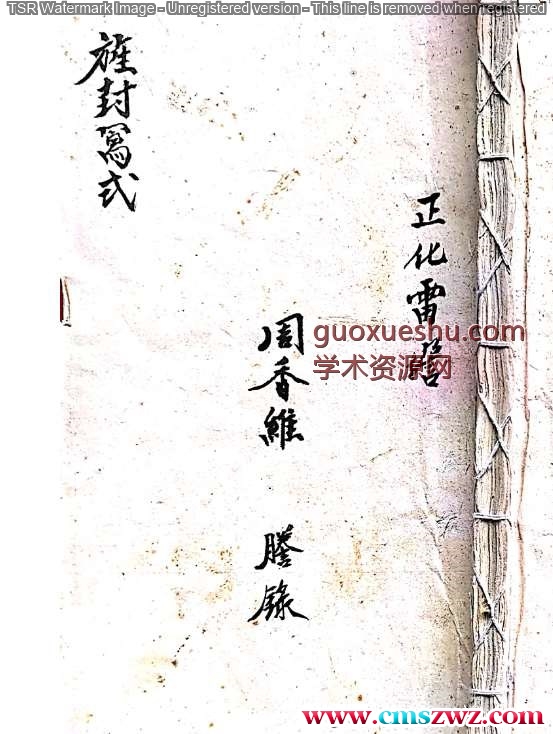 TSR Watermark Image - Unregistered version - This line is removed when registered
正化雷營
周香維 謄錄
旌封寫式
guoxueshu.com
学术资源网
www.cmszwz.com